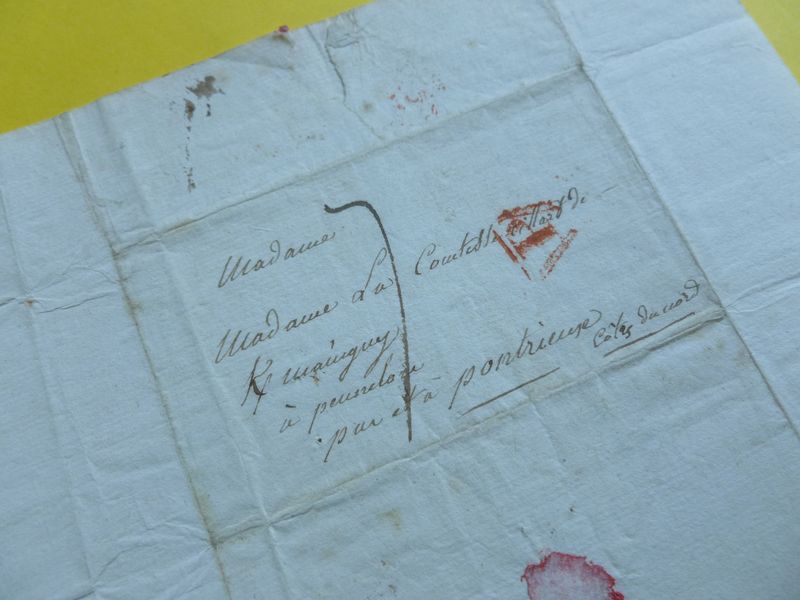 Madame
Madame La Comtesse de
K/ mainguy
à
par et à pontrieux
Côtes du nord
7